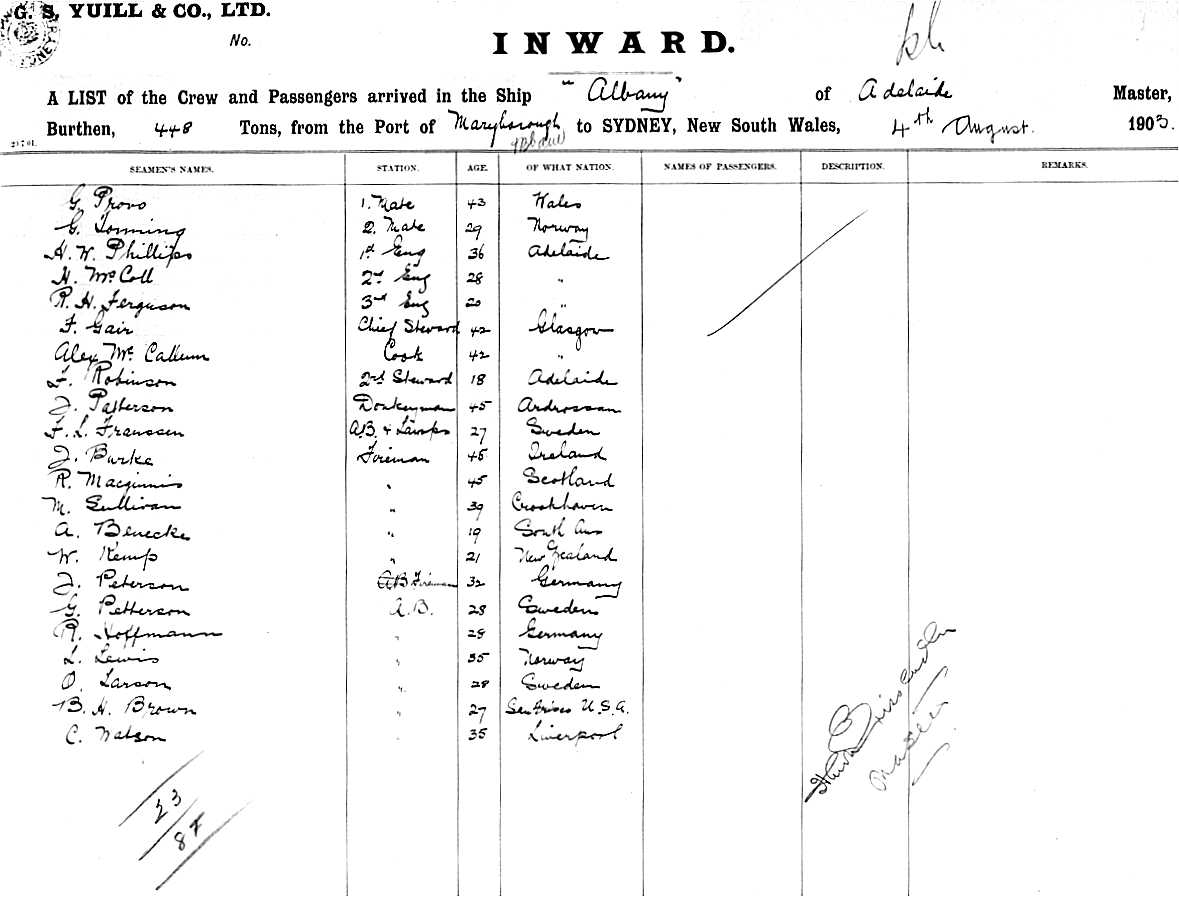 G. S. YUILL & CO., LTD.
No.
INWARD.
A LIST of the Crew and Passengers arrived in the Ship "Albany" of Adelaide Master,
Burthen, 448 Tons, from the Port of Maryborough to SYDNEY, New South Wales, 4th August. 1903.
SEAMEN'S NAMES. STATION. AGE. OF WHAT NATION. NAMES OF PASSENGERS. DESCRIPTION. REMARKS.
G. Provo 1. Mate 43 Wales
G. Tonning 2. Mate 29 Norway
H. W. Phillips 1st Eng 36 Adelaide
H. McColl 2nd Eng 28 "
R. H. Ferguson 3rd Eng 20 "
F. Gair Chief Steward 42 Glasgow
Alex McCallum Cook 42 "
F. Robinson 2nd Steward 18 Adelaide
J. Patterson Donkeyman 45 Ardrossan
F. L. Franssen A.B. & Lamps 27 Sweden
J. Burke Fireman 45 Ireland
R. Macginnis " 45 Scotland
M. Sullivan " 39 Crookhaven
A. Benecke " 19 South Aus
W. Kemp " 21 New Zealand
J. Peterson AB Fireman 32 Germany
G. Petterson A.B. 28 Sweden
R. Hoffmann " 28 Germany
L. Lewis " 35 Norway
O. Larson " 28 Sweden
B. H. Brown " 27 U.S.A.
C. Watson " 35 Liverpool
23
Master